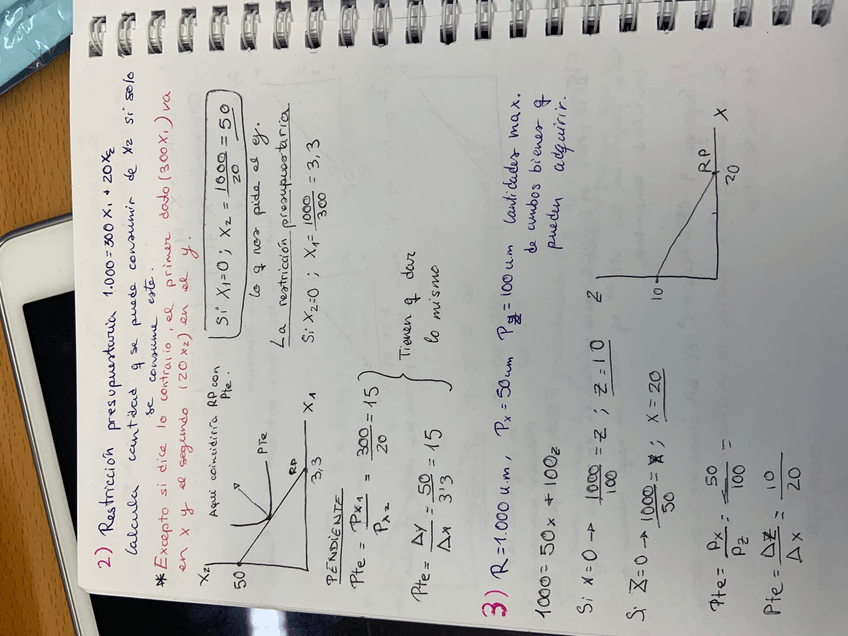 2) Restricción presupuestaria 1.000=300X₁ + 20X₂
Calcula cantidad q se puede consumir de X₂ si solo
se consume este.
* Excepto si dice lo contrario, el primer dado (300X₁) va
en x y el segundo (20X₂) en el y.
Aquí coincidiría RP con
Pte.
X₂
50
Pte
RP
3,3
X1
Si X₁=0 ; X₂ = 1000/20 = 50
lo q nos pide el ej.
La restricción presupuestaria
Si X₂=0 ; X₁= 1000/300 = 3,3
PENDIENTE
Pte = Px1/Px2 = 300/20 = 15
Pte= Δy/Δx = 50/3'3 = 15
Tienen q dar
lo mismo
3) R=1.000 u.m, Px = 50um Pz = 100 u.m Cantidades max.
de ambos bienes q
pueden adquirir.
1000= 50x + 100z
Si x=0 → 1000/100 = z ; z=10
Si z=0 → 1000/50 = x ; x=20
Z
10
RP
20
X
Pte = Px/Pz = 50/100 =
Pte = Δz/Δx = 10/20